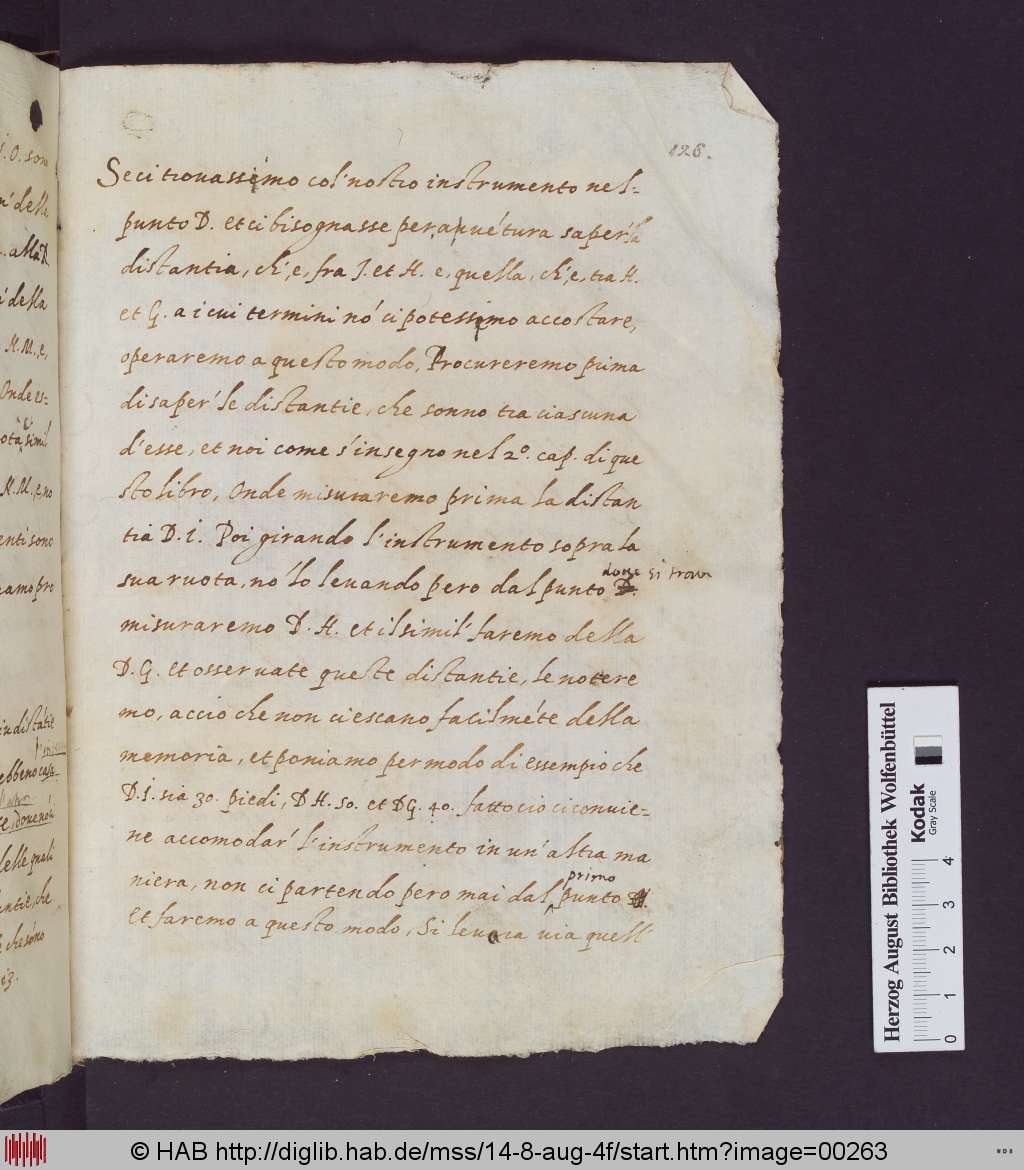 126.
Se ci trovassimo col' nostro instrumento nel=
punto D. et ci bisognasse per avuétura saper' la
distantia, ch', e, fra I. et H. e, quella, ch', e, tra H.
et G. a i cui termini nó ci potessimo accostare,
operaremo a questo modo, Procureremo prima
di saper' le distantie, che sonno tra ciascuna
d'esse, et noi come s'insegno nel 2º. cap. di que
sto libro, Onde misuraremo prima la distan
tia D. i. Poi girando l'instrumento sopra la
sua ruota, nó lo levando pero dal punto D. dove si trova
misuraremo D. H. et il simil' faremo della
D. G. et osservate queste distantie, le notere
mo, accio che non ci escano facilméte della
memoria, et poniamo per modo di essempio che
D. I. sia 30. piedi, D H. 50. et D G. 40. fatto cio ci convie=
ne accomodar' l'instrumento in un' altra ma
niera, non ci partendo pero mai dal primo punto D.
et faremo a questo modo, Si levara via quell
I. O. som
n' della
. alla D.
i della
H. M., e,
Onde es=
ota, simil
H. M., e, no
enti sono
iamo pro
in distátie
ebbeno casa
te, dove nó ci
delle quali
antie, che
che sóno
Herzog August Bibliothek Wolfenbüttel
Kodak
Gray Scale
0 1 2 3 4
© HAB http://diglib.hab.de/mss/14-8-aug-4f/start.htm?image=00263